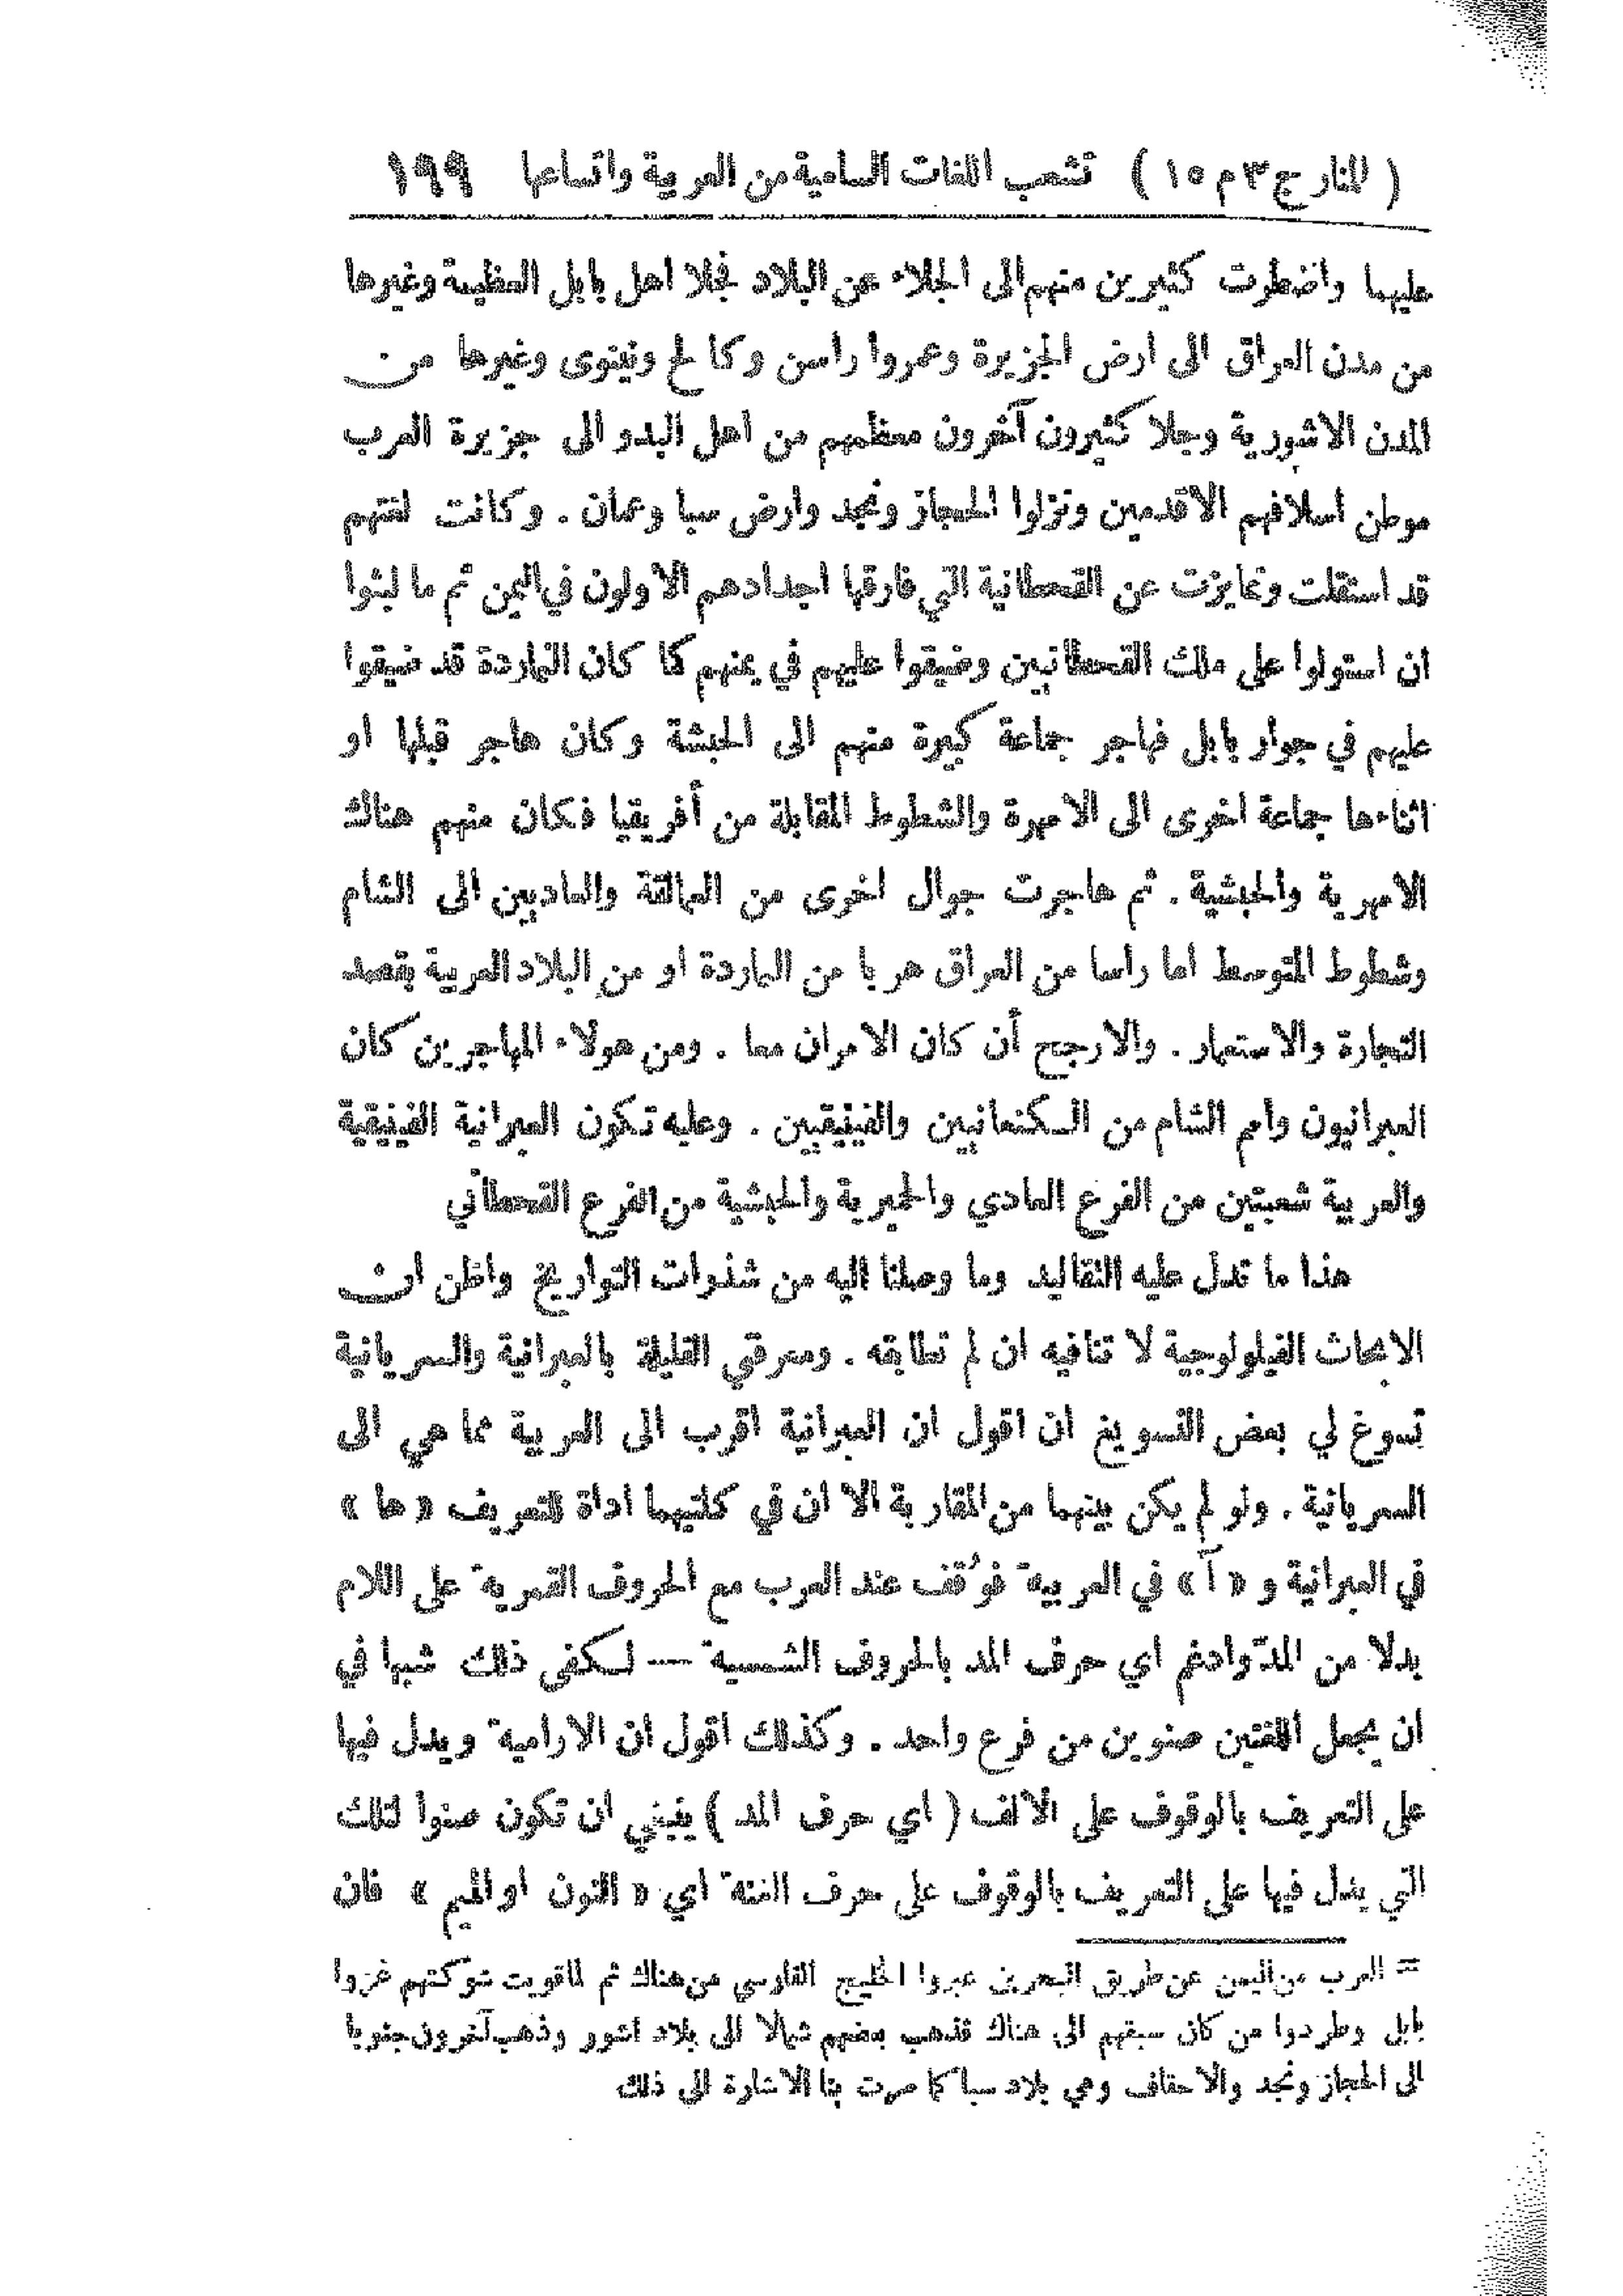 ( المنار ج ٣ م ١٥ ) تشعب اللغات السامية من العربية واتساعها ١٩٩
عليها واضطرت كثيرين منهم الى الجلاء عن البلاد فجلا اهل بابل العظيمة وغيرها
من مدن العراق الى ارض الجزيرة وعمروا راسن وكالح ونينوى وغيرها من
المدن الاشورية وجلا كثيرون آخرون معظمهم من اهل البدو الى جزيرة العرب
موطن اسلافهم الاقدمين ونزلوا الحجاز ونجد وارض سبا وعمان . وكانت لغتهم
قد استقلت وتمايزت عن القحطانية التي فارقها اجدادهم الاولون في اليمن ثم ما لبثوا
ان استولوا على ملك القحطانيين وضيقوا عليهم في يمنهم كما كان النماردة قد ضيقوا
عليهم في جوار بابل فهاجر جماعة كبيرة منهم الى الحبشة وكان هاجر قبلها او
اثناءها جماعة اخرى الى الامهرة والشطوط المقابلة من أفريقيا فكان منهم هناك
الامهرية والحبشية . ثم هاجرت جوال اخرى من العمالقة والعاديين الى الشام
وشطوط المتوسط اما راسا من العراق هربا من النماردة او من البلاد العربية بقصد
التجارة والاستعمار . والارجح أن كان الامران معا . ومن هولاء المهاجرين كان
العبرانيون وامم الشام من الكنعانيين والفينيقيين . وعليه تكون العبرانية الفينيقية
والعربية شعبتين من الفرع العادي والحميرية والحبشية من الفرع القحطاني
هذا ما تدل عليه التقاليد وما وصلنا اليه من شذرات التواريخ واظن ان
الابحاث الفيلولوجية لا تنافيه ان لم تطابقه . ومعرفتي القليلة بالعبرانية والسريانية
تسوغ لي بعض التسويغ ان اقول ان العبرانية اقرب الى العربية مما هي الى
السريانية . ولو لم يكن بينهما من المقاربة الا ان في كلتيهما اداة للتعريف « ها »
في العبرانية و « آ » في العربية فوُقف عند العرب مع الحروف القمرية على اللام
بدلا من المدّ وادغم اي حرف المد بالحروف الشمسية — لكفى ذلك شبها في
ان يجعل اللغتين صنوين من فرع واحد . وكذلك اقول ان الارامية ويدل فيها
على التعريف بالوقوف على الالف ( اي حرف المد ) ينبغي ان تكون صنوا لتلك
التي يدل فيها على التعريف بالوقوف على حرف الغنة اي « النون او الميم » فان
= العرب من اليمن عن طريق البحرين عبروا الخليج الفارسي من هناك ثم لما قويت شوكتهم غزوا
بابل وطردوا من كان سبقهم الى هناك فذهب بعضهم شمالا الى بلاد اشور وذهب آخرون جنوبا
الى الحجاز ونجد والاحقاف وهي بلاد سبا كما مرت بنا الاشارة الى ذلك